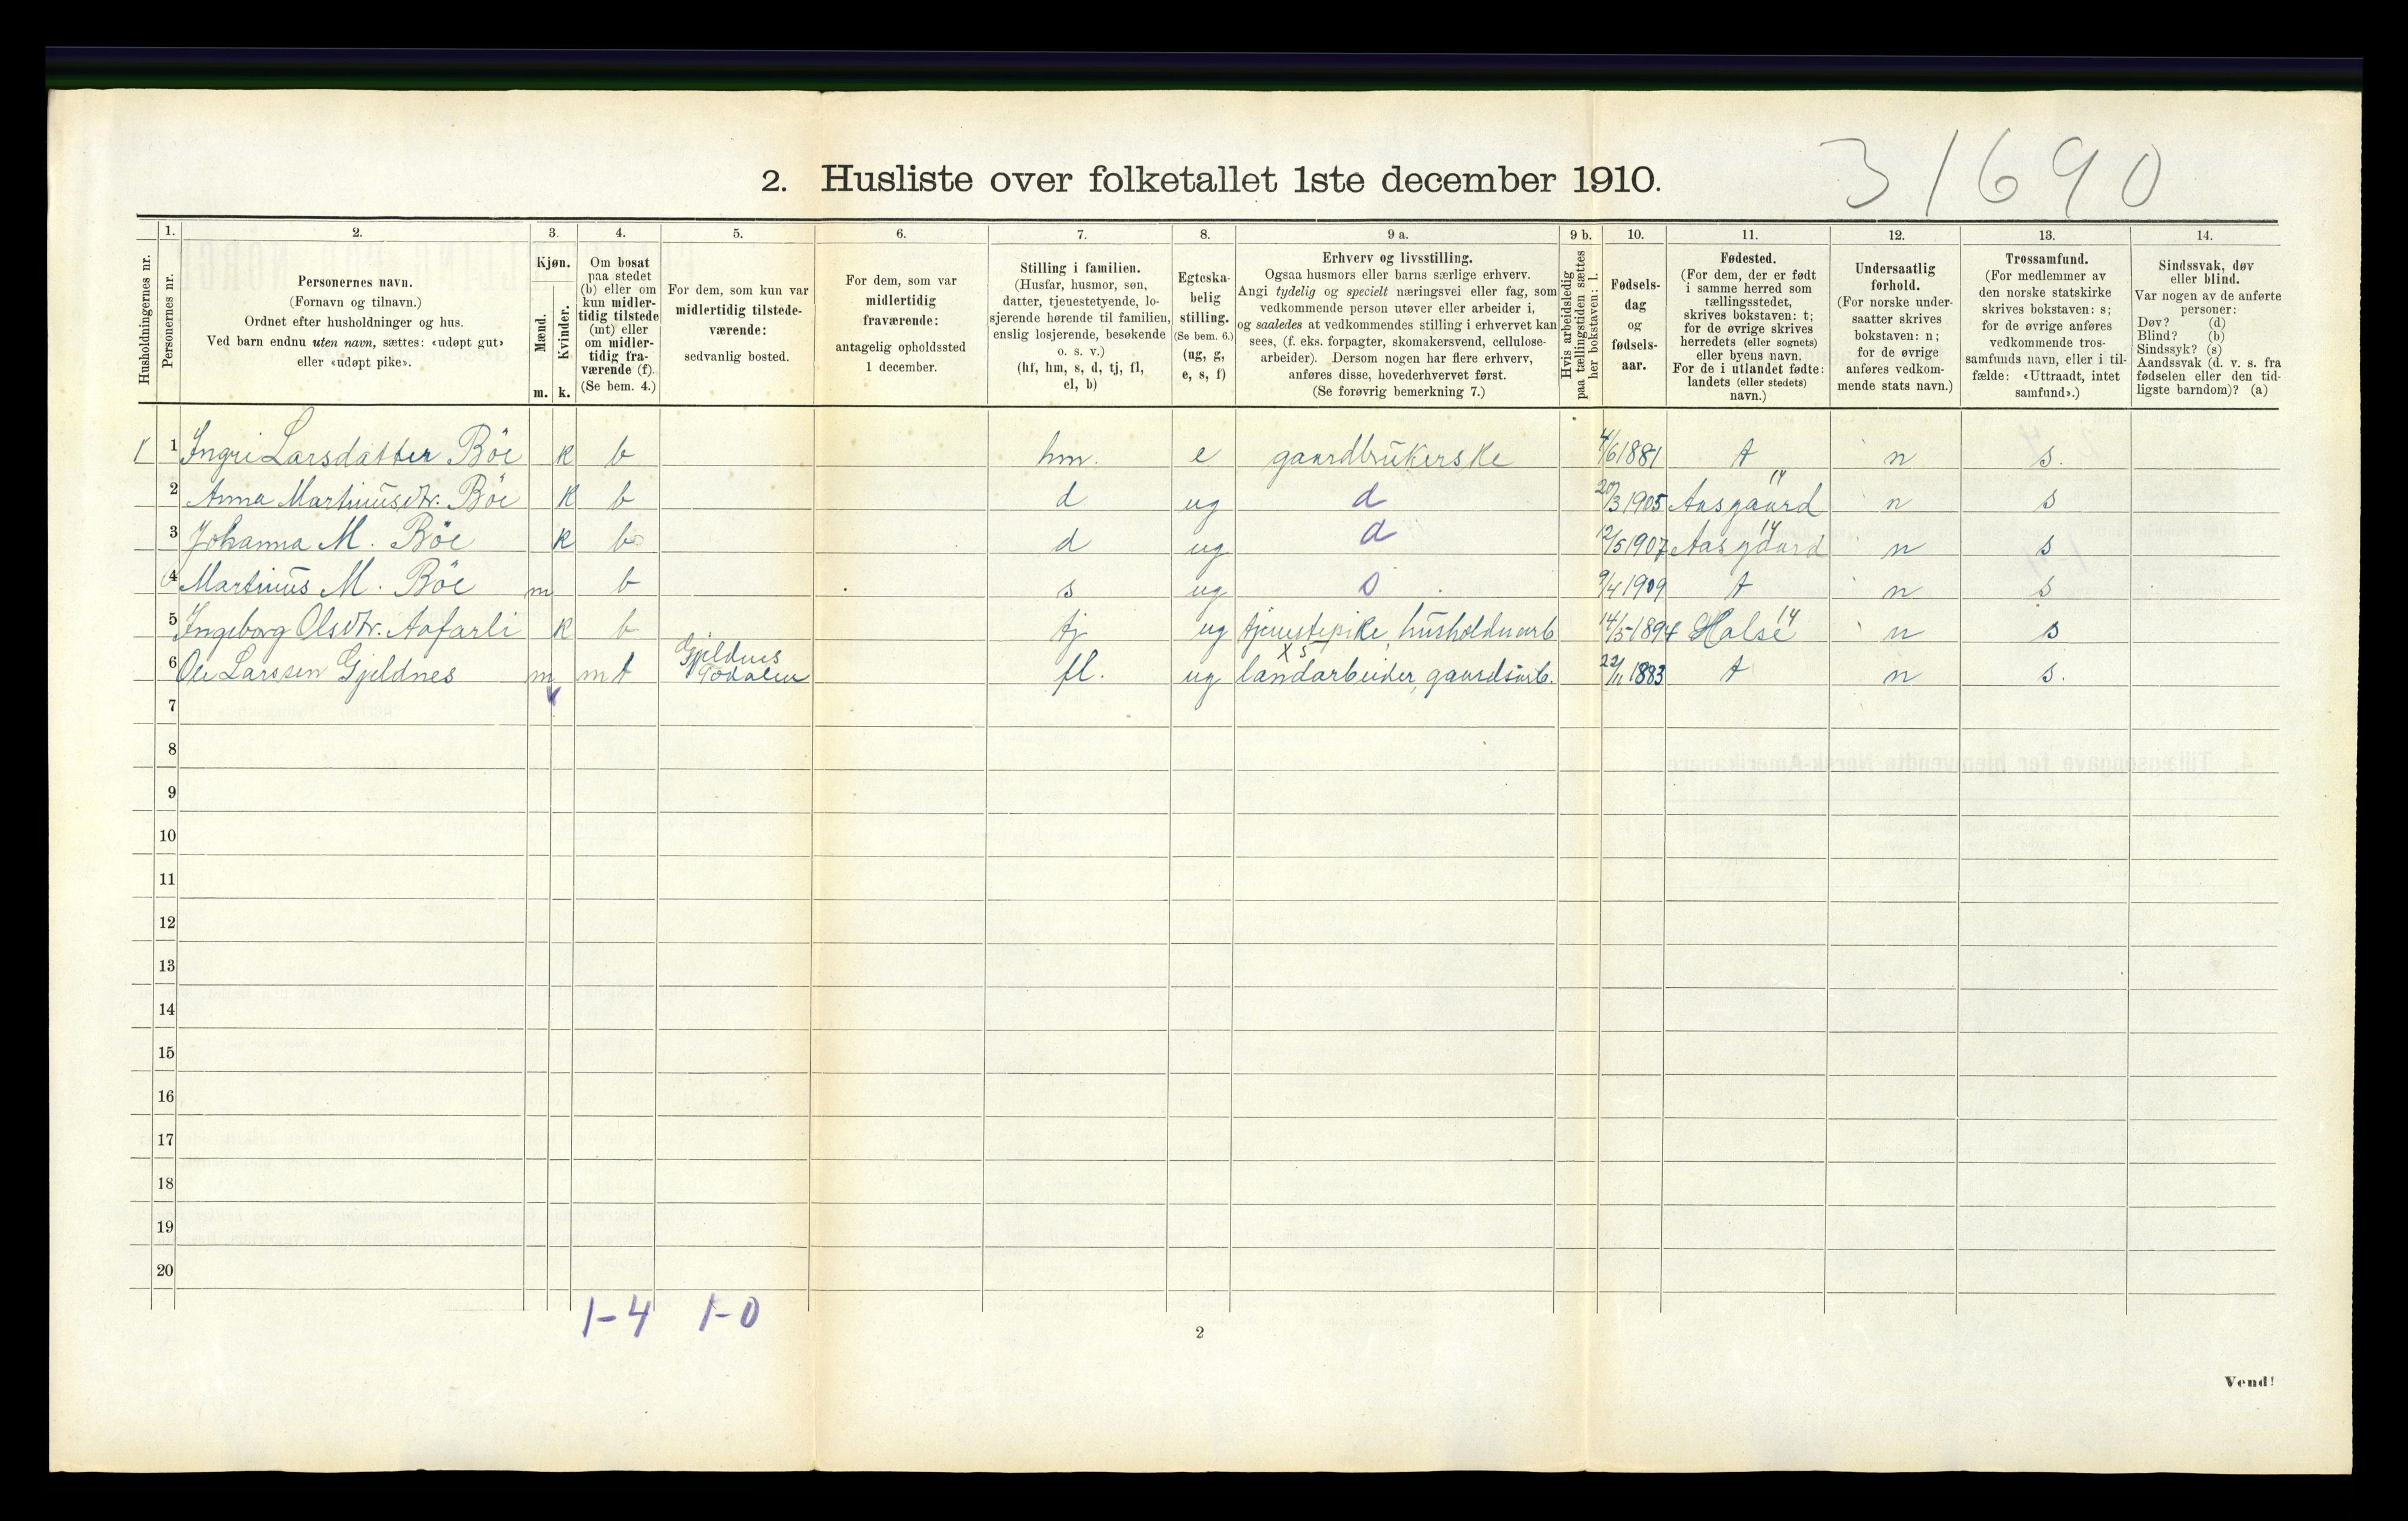 31690
2. Husliste over folketallet 1ste december 1910.
Husholdningernes nr.
1. Personernes nr.
2. Personernes navn.
(Fornavn og tilnavn.)
Ordnet efter husholdninger og hus.
Ved barn endnu uten navn, sættes: «udøpt gut»
eller «udøpt pike».
3. Kjøn.
Mænd. m.
Kvinder. k.
4. Om bosat
paa stedet
(b) eller om
kun midler-
tidig tilstede
(mt) eller
om midler-
tidig fra-
værende (f).
(Se bem. 4.)
5. For dem, som kun var
midlertidig tilstede-
værende:
sedvanlig bosted.
6. For dem, som var
midlertidig
fraværende:
antagelig opholdssted
1 december.
7. Stilling i familien.
(Husfar, husmor, søn,
datter, tjenestetyende, lo-
sjerende hørende til familien,
enslig losjerende, besøkende
o. s. v.)
(hf, hm, s, d, tj, fl,
el, b)
8. Egteska-
belig
stilling.
(Se bem. 6.)
(ug, g,
e, s, f)
9 a. Erhverv og livsstilling.
Ogsaa husmors eller barns særlige erhverv.
Angi tydelig og specielt næringsvei eller fag, som
vedkommende person utøver eller arbeider i,
og saaledes at vedkommendes stilling i erhvervet kan
sees, (f. eks. forpagter, skomakersvend, cellulose-
arbeider). Dersom nogen har flere erhverv,
anføres disse, hovederhvervet først.
(Se forøvrig bemerkning 7.)
9 b. Hvis arbeidsledig
paa tællingstiden sættes
her bokstaven: l.
10. Fødsels-
dag
og
fødsels-
aar.
11. Fødested.
(For dem, der er født
i samme herred som
tællingsstedet,
skrives bokstaven: t;
for de øvrige skrives
herredets (eller sognets)
eller byens navn.
For de i utlandet fødte:
landets (eller stedets)
navn.)
12. Undersaatlig
forhold.
(For norske under-
saatter skrives
bokstaven: n;
for de øvrige
anføres vedkom-
mende stats navn.)
13. Trossamfund.
(For medlemmer av
den norske statskirke
skrives bokstaven: s;
for de øvrige anføres
vedkommende tros-
samfunds navn, eller i til-
fælde: «Uttraadt, intet
samfund».)
14. Sindssvak, døv
eller blind.
Var nogen av de anførte
personer:
Døv? (d)
Blind? (b)
Sindssyk? (s)
Aandssvak (d. v. s. fra
fødselen eller den tid-
ligste barndom)? (a)
1 1 Ingri Larsdatter Böe k b hm. e gaardbrukerske 4/6 1881 t n s.
2 Anna Martinusdtr. Böe k b d ug d 20/3 1905 Aasgaard 14 n s
3 Johanna M. Böe k b d ug d 12/5 1907 Aasgaard 14 n s
4 Martinus M. Böe m b s ug s 9/4 1909 t n s
5 Ingeborg Olsdtr. Aafarli k b tj ug tjenestepike, husholdnarb 14/5 1894 Halse 14 n s
6 Ole Larssen Gjeldnes m mt Gjeldnes Todalen fl. ug landarbeider, gaardsarb. 22/11 1883 t n s.
7
8
9
10
11
12
13
14
15
16
17
18
19
20
1-4 1-0
2
Vend!